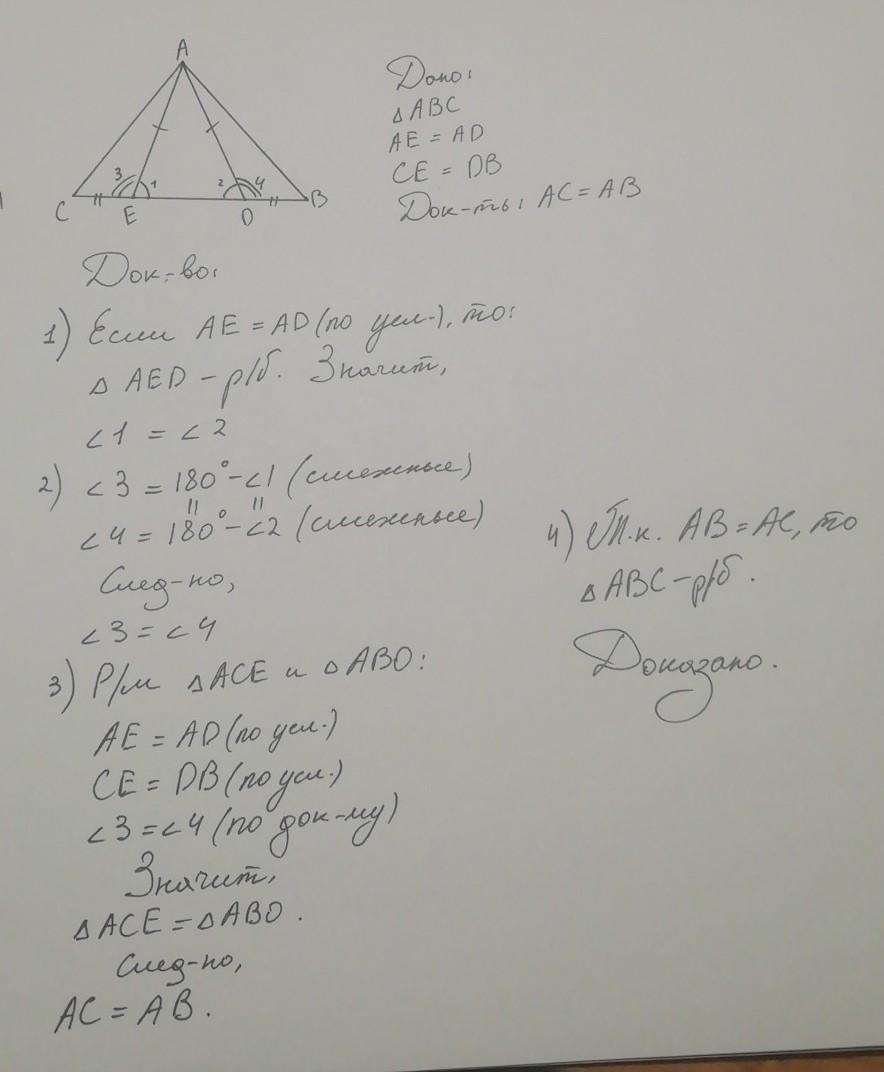 A
3
1
2
4
C
E
D
B
Дано:
△ABC
AE = AD
CE = DB
Док-ть: AC = AB
Док-во:
1) Если AE = AD (по усл.), то:
△ AED – р/б. Значит,
∠1 = ∠2
2) ∠3 = 180° – ∠1 (смежные)
∠4 = 180° – ∠2 (смежные)
След-но,
∠3 = ∠4
3) Р/м △ACE и △ABD:
AE = AD (по усл.)
CE = DB (по усл.)
∠3 = ∠4 (по док-му)
Значит,
△ACE = △ABD.
След-но,
AC = AB.
4) Т.к. AB = AC, то
△ABC – р/б.
Доказано.